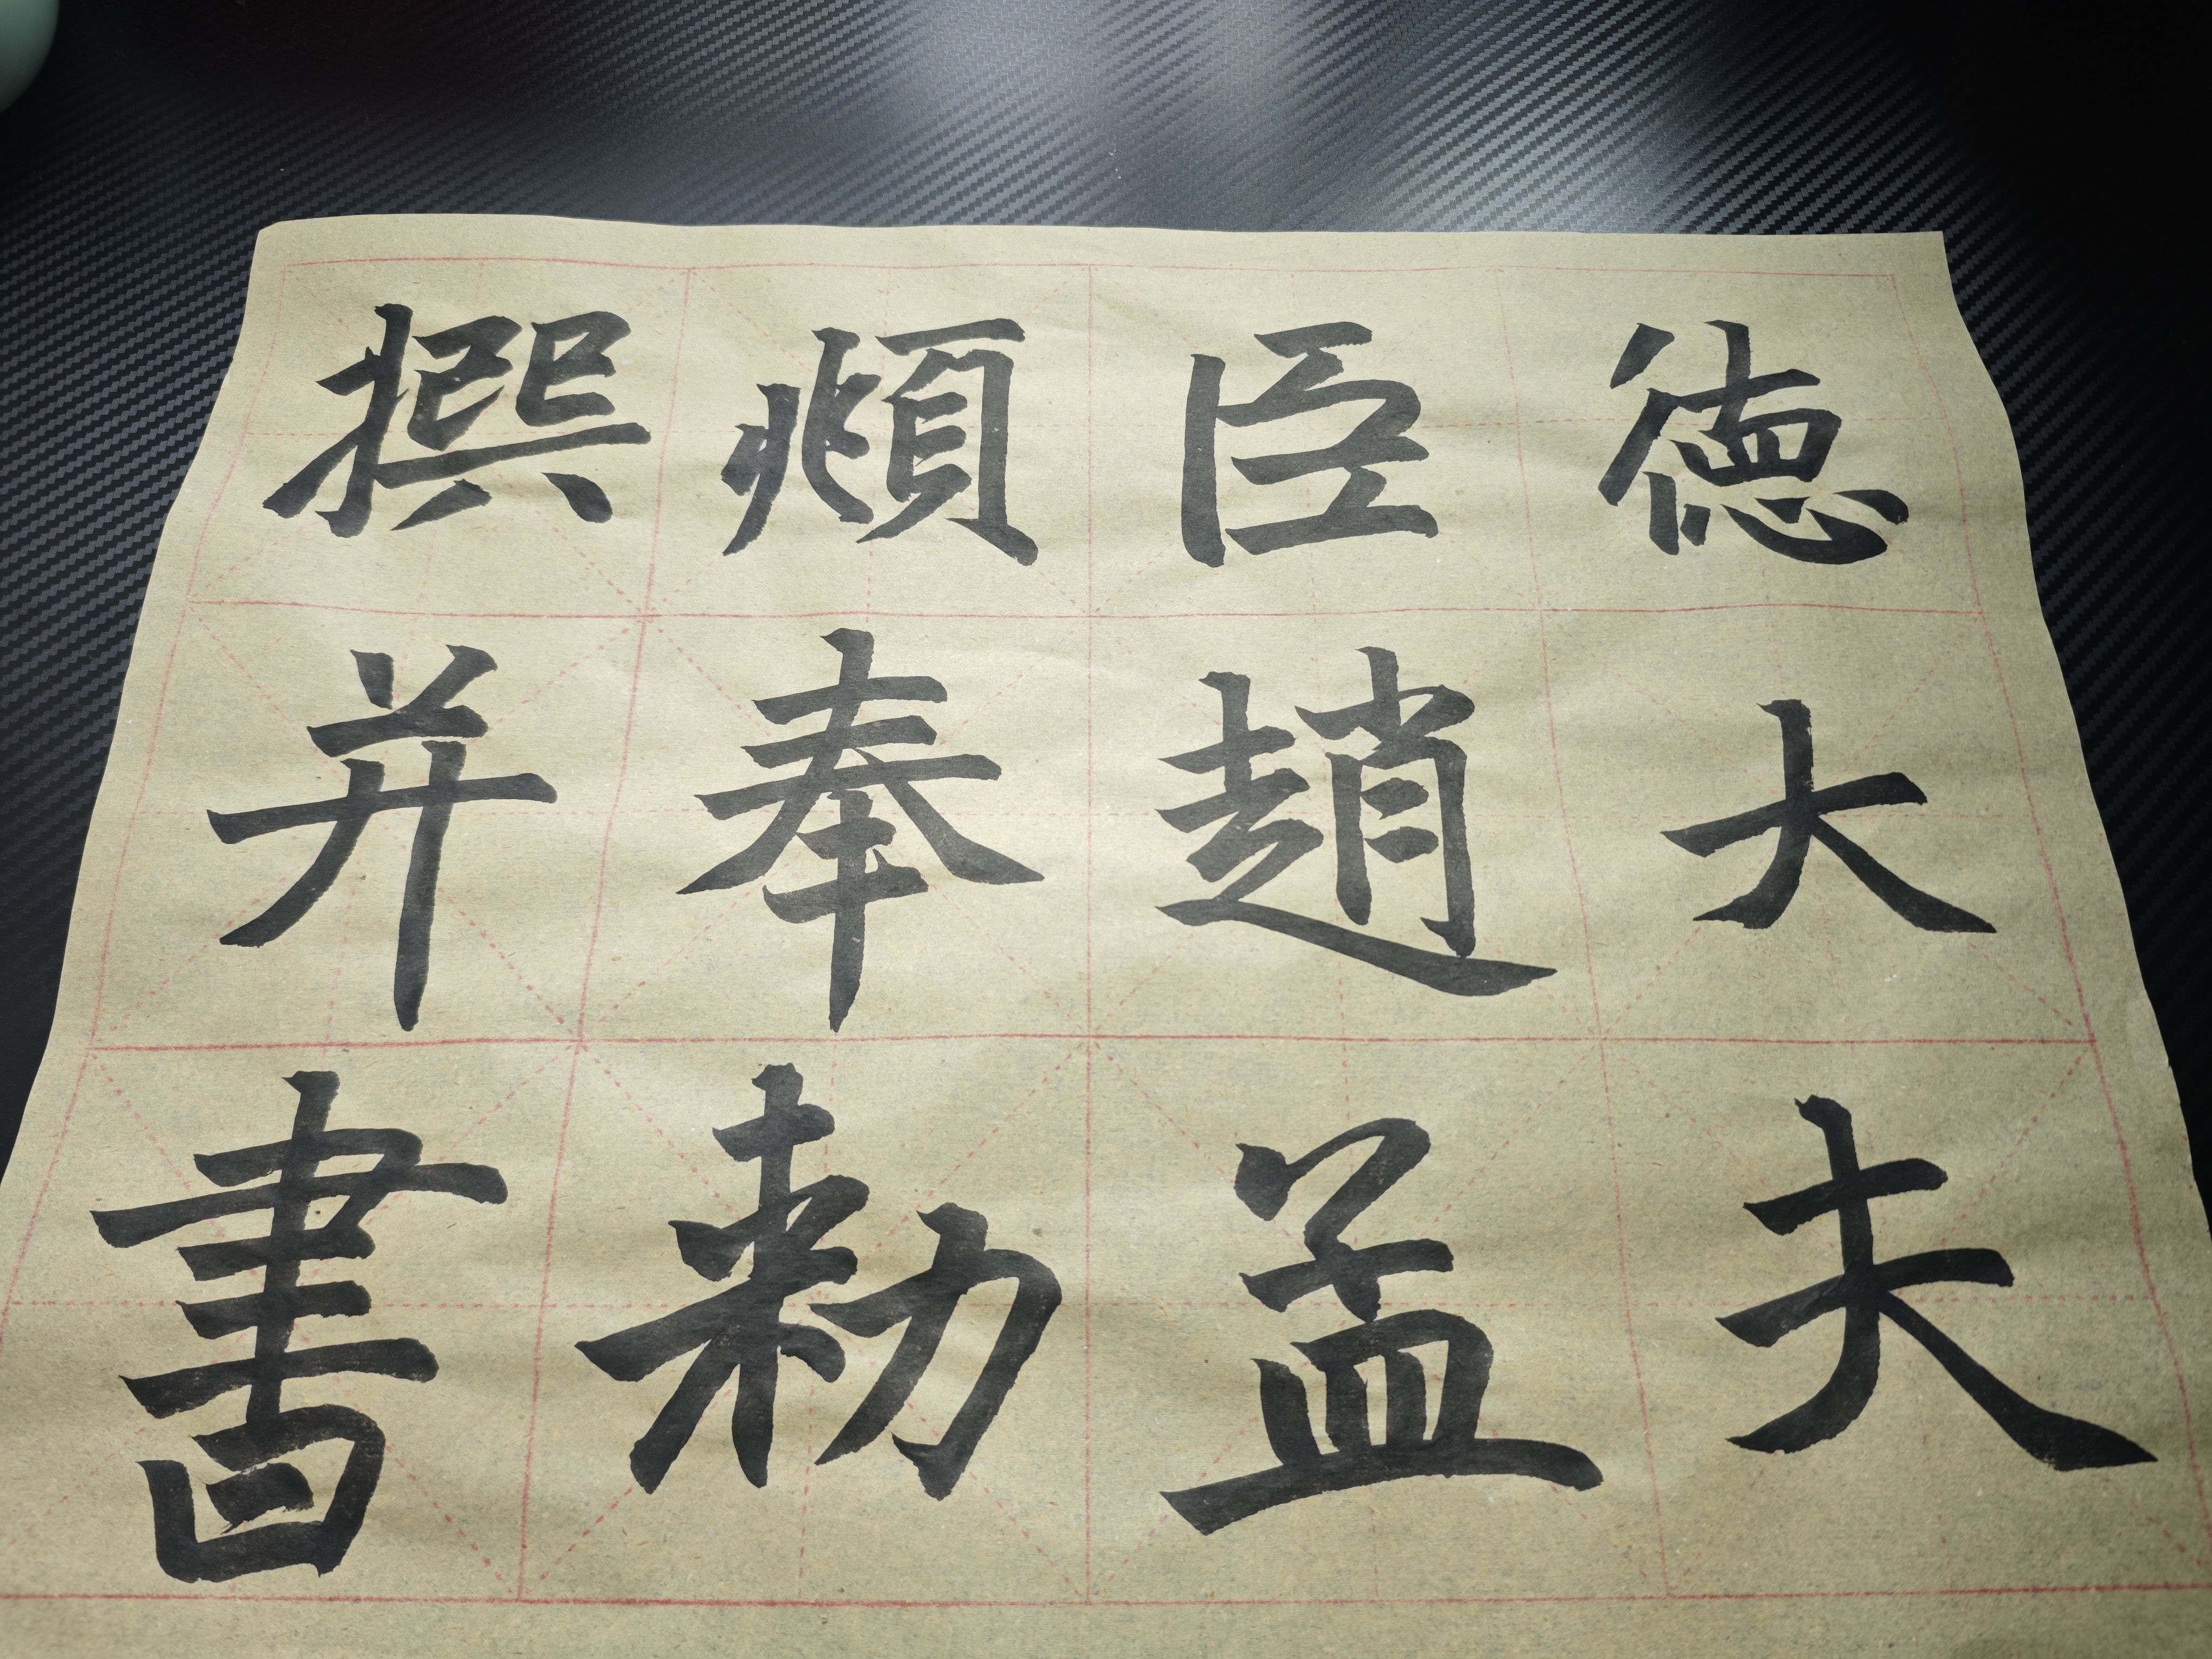 德大夫
臣趙孟
頫奉勑
撰并書